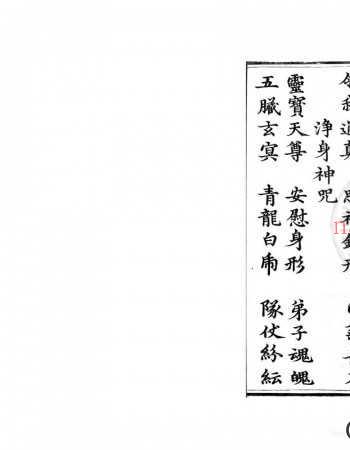 淨身神咒
靈寶天尊 安慰身形 弟子魂魄
五臟玄冥 青龍白虎 隊仗紛紜